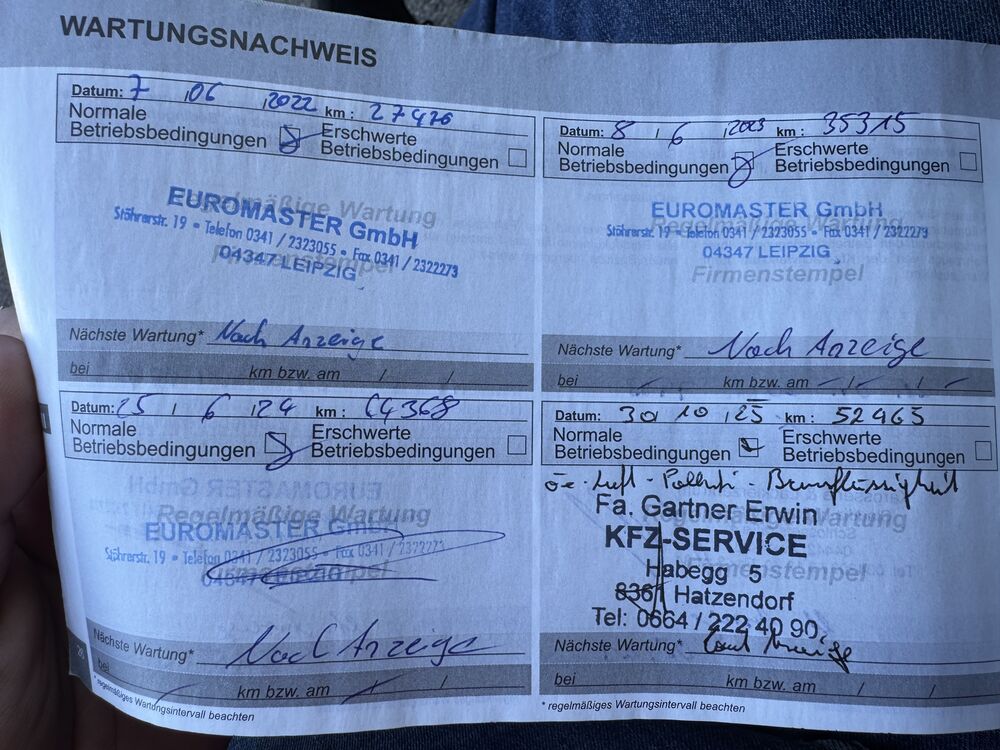 WARTUNGSNACHWEIS
Datum: 7 . 06 . 2022 km : 27476
Normale
Betriebsbedingungen
Erschwerte
Betriebsbedingungen
Regelmäßige Wartung
EUROMASTER GmbH
Stöhrerstr. 19 • Telefon 0341 / 2323055 • Fax 0341 / 2322273
04347 LEIPZIG
Firmenstempel
Nächste Wartung* Nach Anzeige
bei km bzw. am / /
Datum: 8 / 6 / 2023 km : 35315
Normale
Betriebsbedingungen
Erschwerte
Betriebsbedingungen
EUROMASTER GmbH
Regelmäßige Wartung
Stöhrerstr. 19 • Telefon 0341 / 2323055 • Fax 0341 / 2322273
04347 LEIPZIG
Firmenstempel
Nächste Wartung* Nach Anzeige
bei km bzw. am / /
Datum: 25 / 6 / 24 km :
Normale
Betriebsbedingungen
Erschwerte
Betriebsbedingungen
Regelmäßige Wartung
EUROMASTER GmbH
Stöhrerstr. 19 • Telefon 0341 / 2323055 • Fax 0341 / 2322273
04347 LEIPZIG
Firmenstempel
Nächste Wartung* Nach Anzeige
bei km bzw. am / /
* regelmäßiges Wartungsintervall beachten
Datum: 30 / 10 / 25 km : 52465
Normale
Betriebsbedingungen
Erschwerte
Betriebsbedingungen
Luft - - Bremsflüssigkeit
Fa. Gartner Erwin
Regelmäßige Wartung
KFZ-SERVICE
Firmenstempel
Habegg 5
8361 Hatzendorf
Tel: 0664 / 222 40 90
Nächste Wartung* Laut Anzeige
bei km bzw. am / /
* regelmäßiges Wartungsintervall beachten